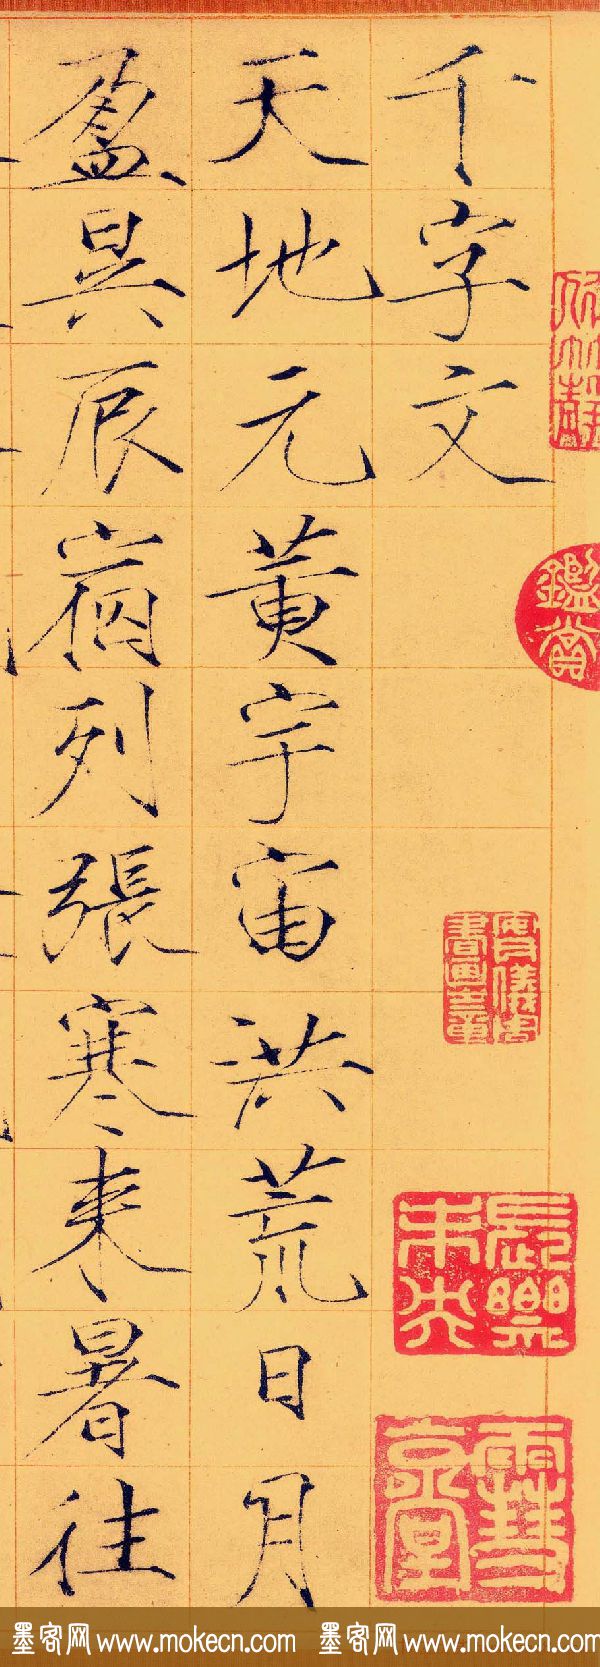 千字文
天地元黃宇宙洪荒日月
盈昃辰宿列張寒来暑往
鑑賞
長樂未央
墨客网 www.mokecn.com 墨客网 www.mokecn.com